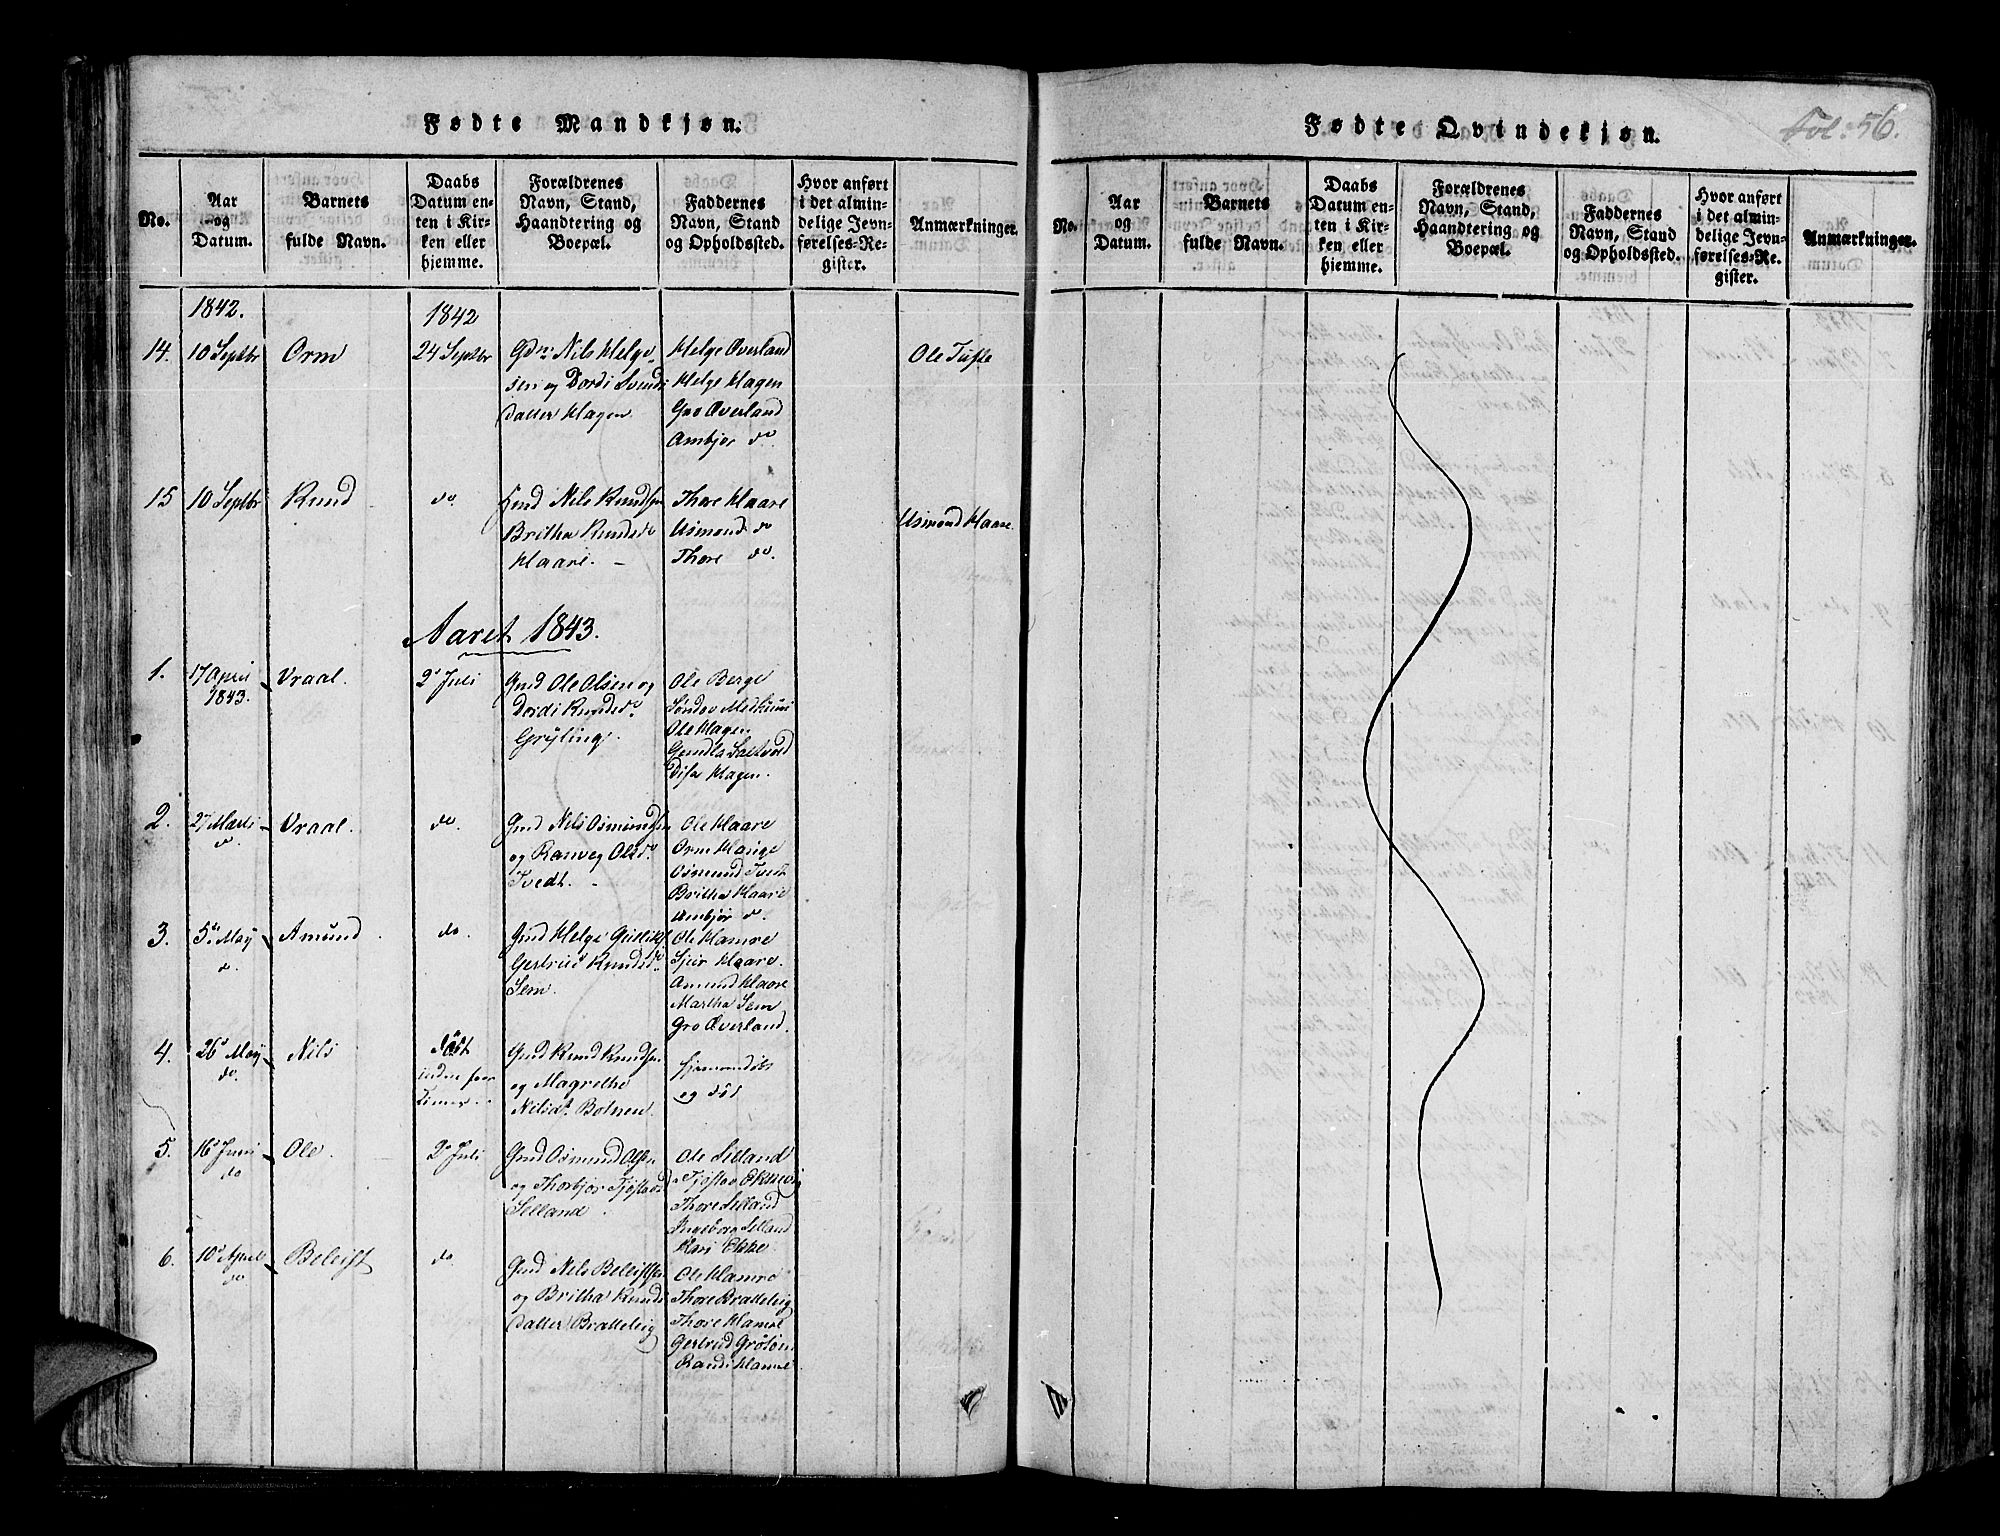 Fødte Mandkjøn.
No.
Aar
og
Datum.
Barnets
fulde Navn.
Daabs
Datum en-
ten i Kir-
ken eller
hjemme.
Forældrenes
Navn, Stand,
Haandtering og
Boepæl.
Faddernes
Navn, Stand
og Opholdssted.
Hvor anført
i det almin-
delige Jevn-
førelses-Re-
gister.
Anmærkninger.
1842.
1842
14.
10 Septbr
Orm
24 Septbr
Gdm: Nils Helge-
sen og Dordi Svends
datter Hagen
Helge Øverland
Helge Hagen
Gro Øverland
Ambjør do
Ole Tufte
15
10 Septbr
Knud
do
Nils Knudsen
Britha Knudsd
Haare.
Thore Haare
Asmond do
Thore do.
Asmond Haare.
Aaret 1843.
1.
17 April
1843.
Vraal.
2 Juli
Gmd Ole Olsen og
Dordi Knudsd.
Gryting.
Ole Berge
Ole Hagen
Disa Hagen.
2.
27 Marts
do.
Vraal.
do.
Gmd Nils Osmundsen
og Ranveg Olsd.
Tvedt.
Ole Haare
Orm Hauge
Osmund Tvedt
Britha Haare
Ambjør do.
3.
5 May
do.
Amund
do.
Gmd Helge
Gertrud Knudsd.
Sem.
Ole Hamre
Haare.
Amund Haare
Martha Sem
Gro Øverland.
4.
26 May
do.
Nils
Døbt
Gmd Knud Knudsen
og Magrethe
Nilsdt. Botnen.
hjemmedøbt
og død
5.
16 Juni
do
Ole.
2 Juli
Gmd Osmund Olsen
og Thorbjør Tjøstavsd
Selland.
Ole Selland
Tjøstav
Thore Selland
Ingeborg Selland
Kari Ekke
6.
10 April
do
Beleift
do
Gmd Nils Beleiftsen
og Britha Knuds
datter Bratteleig
Ole Hamre
Thore Bratteleig
Thore Hamre
Gertrud Grøtøen
Randi Hamre
Fødte Qvindekjøn.
Fol: 56.
No.
Aar
og
Datum.
Barnets
fulde Navn.
Daabs
Datum en-
ten i Kir-
ken eller
hjemme.
Forældrenes
Navn, Stand,
Haandtering og
Boepæl.
Faddernes
Navn, Stand
og Opholdssted.
Hvor anført
i det almin-
delige Jevn-
førelses-Re-
gister.
Anmærkninger.